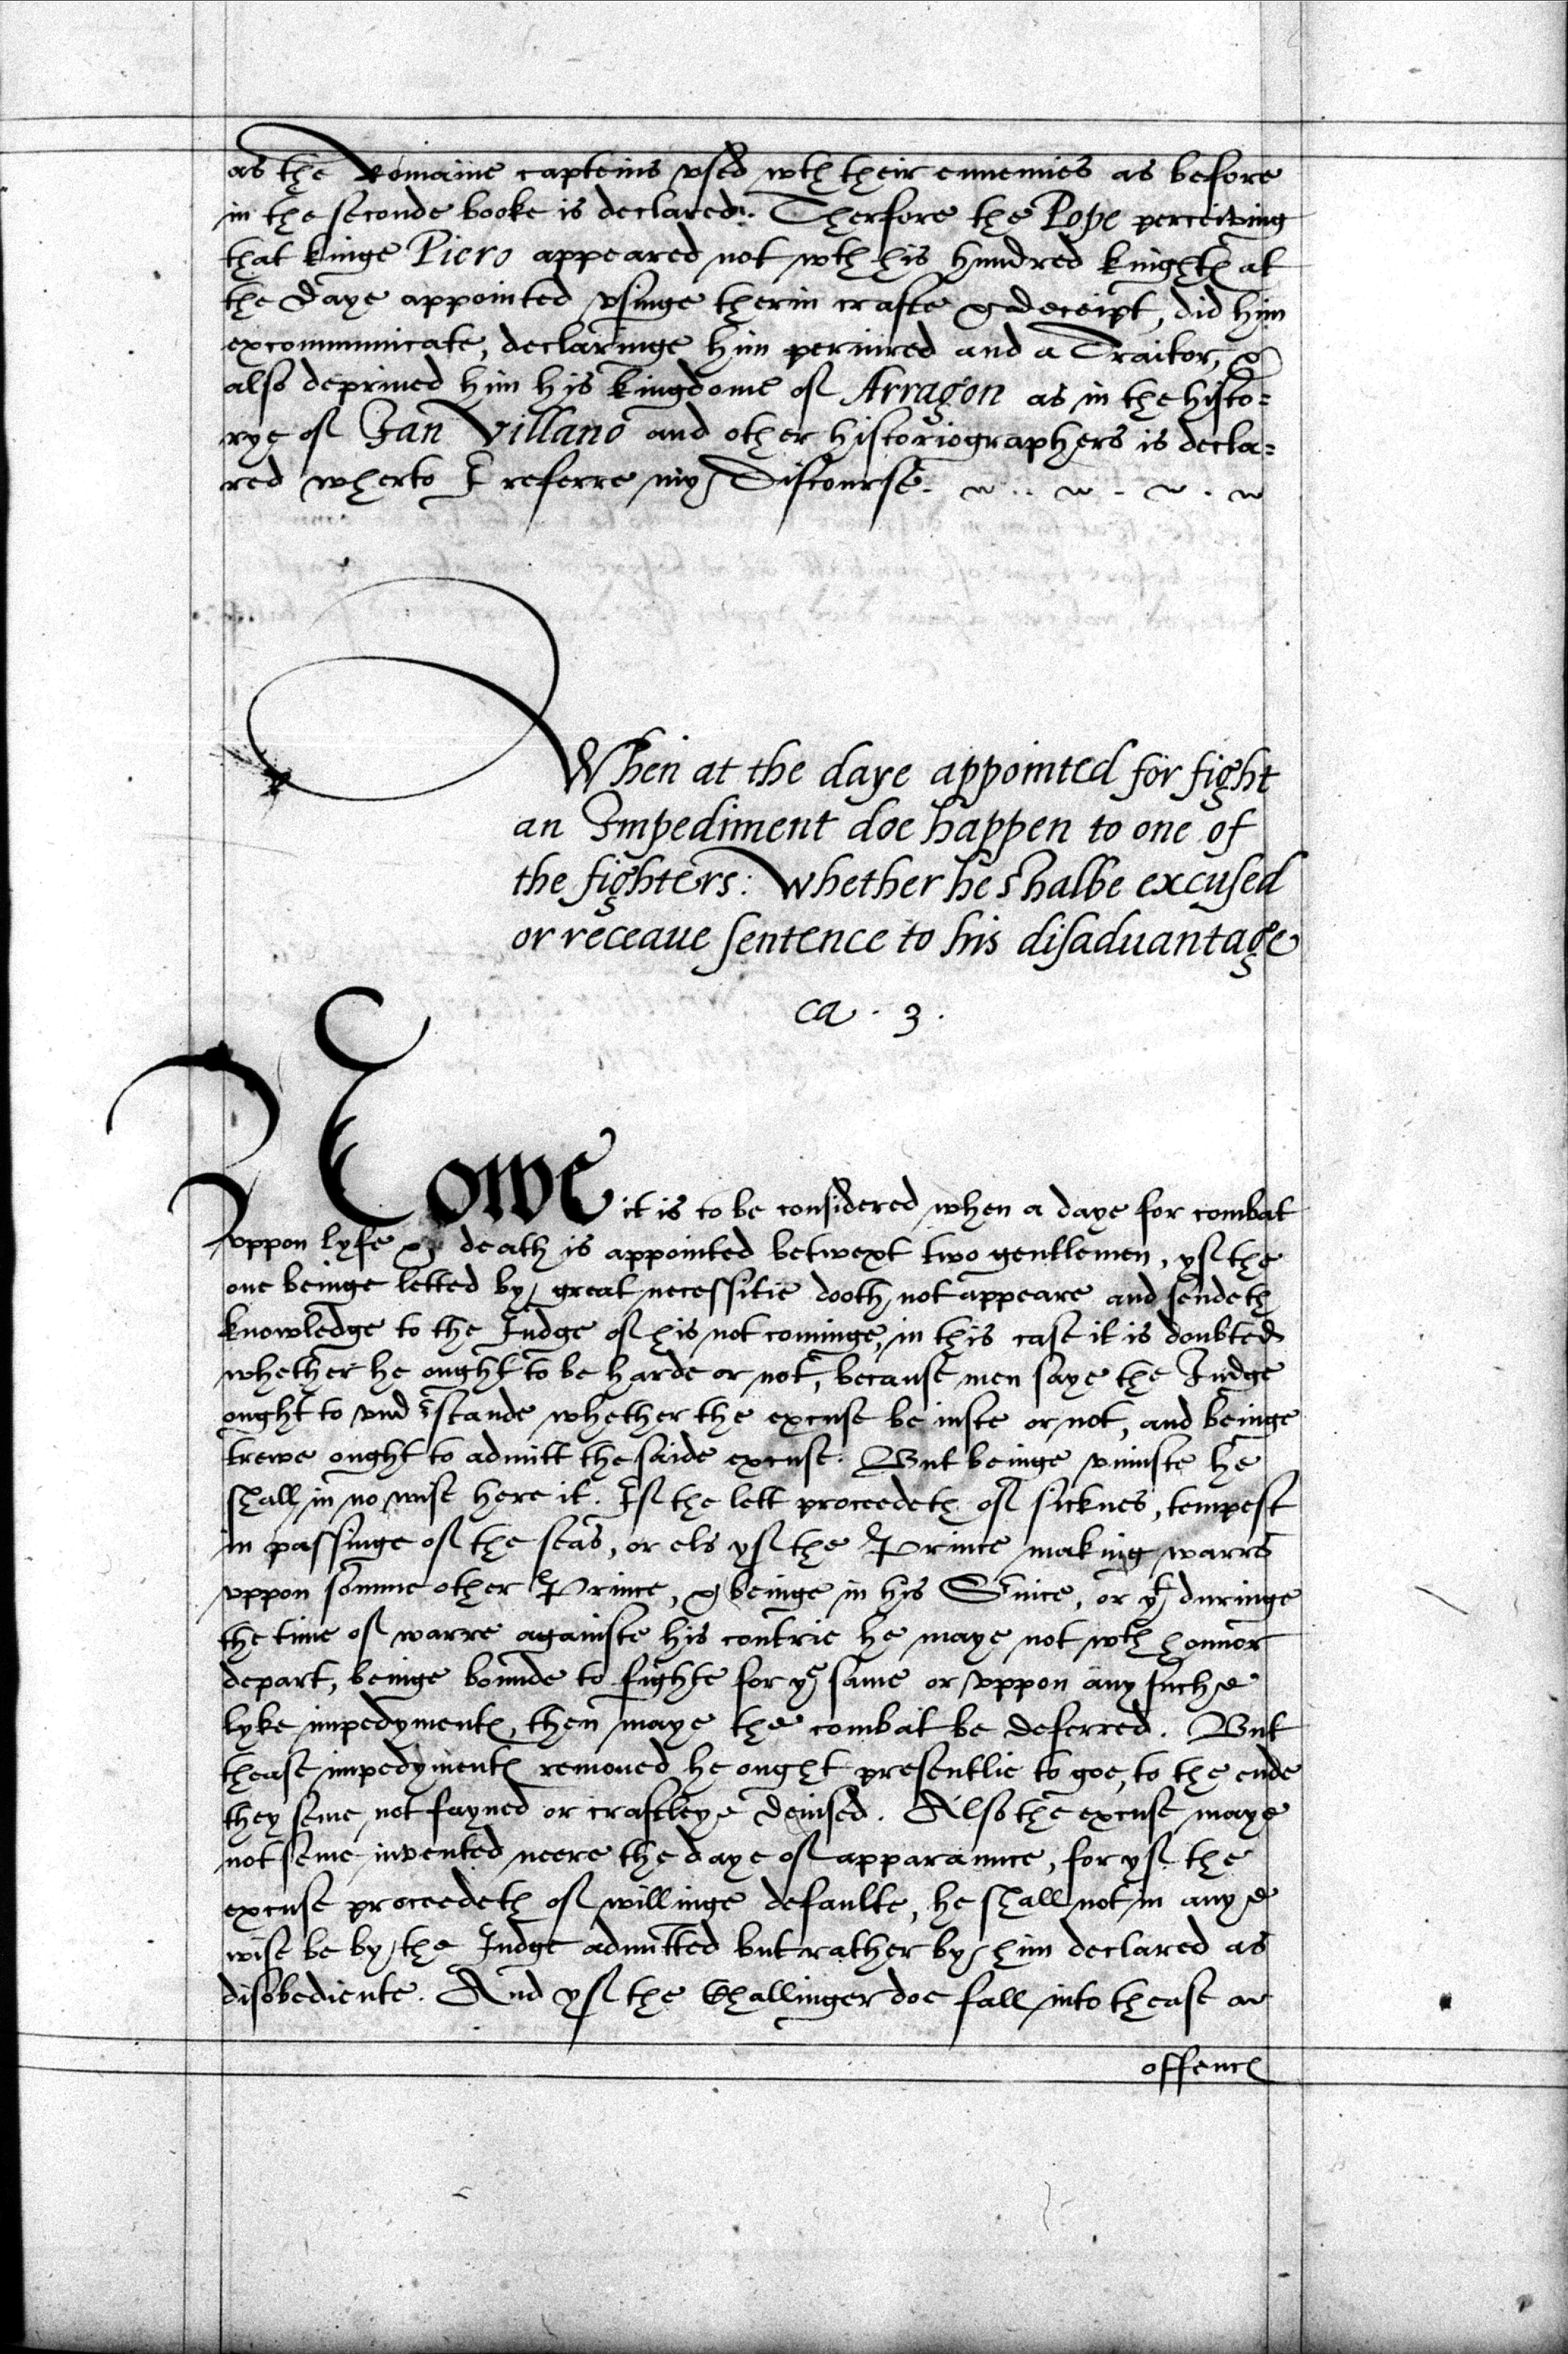 as the Romaine capteins vsed wth their ennemies as before
in the seconde booke is declared. Therfore the Pope perceiving
that kinge Piero appeared not wth his hundred knightes at
the daye appointed vsinge therin crafte & deceipt, did him
excommunicate, declaringe him periured and a Traitor, &
also depriued him his kingdome of Arragon as in the histo=
rye of Jan Villano and other historiographers is decla=
red wherto I referre my Discourse.
When at the daye appointed for fight
an Impediment doe happen to one of
the fighters: whether he shalbe excused
or receaue sentence to his disaduantage
ca. 3.
Nowe it is to be considered when a daye for combat
vppon lyfe & death is appointed betwext two gentlemen, yf the
one beinge letted by great necessitie dooth not appeare and sendeth
knowledge to the Judge of his not cominge, in this case it is doubted
whether he ought to be harde or not, because men saye the Judge
ought to vnderstande whether the excuse be iuste or not, and beinge
trewe ought to admitt the saide excuse. But beinge vniuste he
shall in no wise here it. If the lett proceedeth of sicknes, tempest
in passinge of the seas, or els yf the Prince making warre
vppon somme other Prince, & beinge in his Seruice, or yt duringe
the time of warre againste his contrie he maye not wth honnor
depart, beinge bounde to fighte for ye same or vppon any suche
lyke impedymentes, then maye the combat be deferred. But
thease impedymentes remoued he ought presentlie to goe, to the ende
they seme not fayned or craftleye deuised. Also the excuse maye
not seme invented neere the daye of apparaunce, for yf the
excuse proceedeth of willinge defaulte, he shall not in anye
wise be by the Judge admitted but rather by him declared as
disobediente. And yf the Challinger doe fall into thease
offences